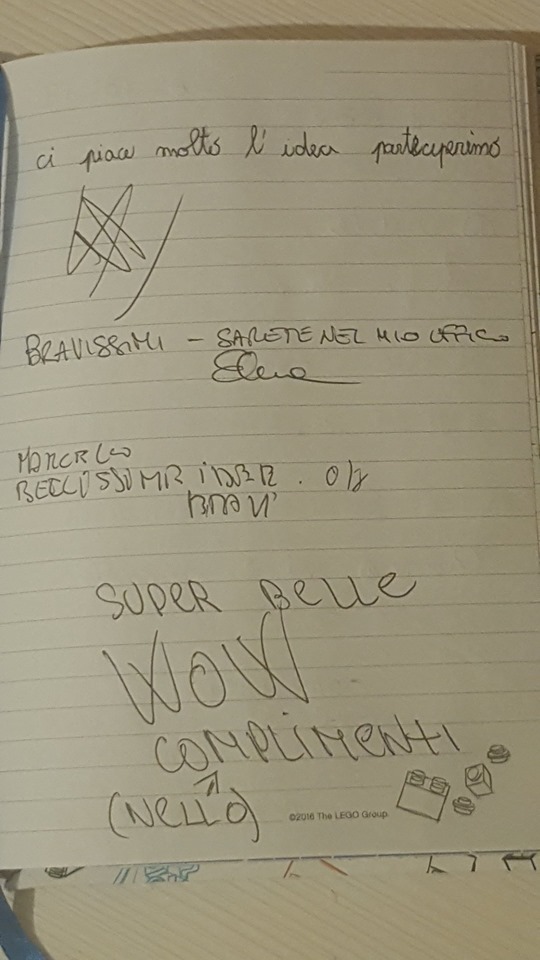 ci piace molto l'idea parteciperimo
BRAVISSIMI - SARETE NEL MIO UFFICO
Elena
MARCELLO
BELLISSIMA IDEA.
BRAVI
SUPER BELLE
WOW
COMPLIMENTI
(NELLO)
©2016 The LEGO Group.